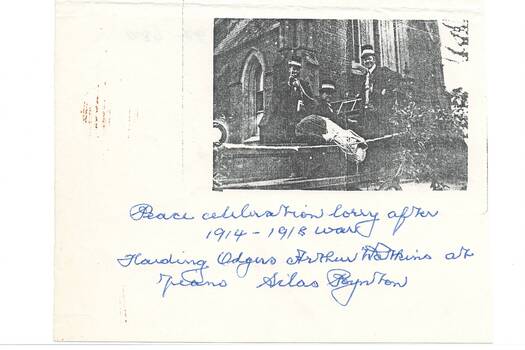 Peace celebration lorry after
1914-1918 war
Harding Odgers Arthur Watkins at
piano Silas Poynton